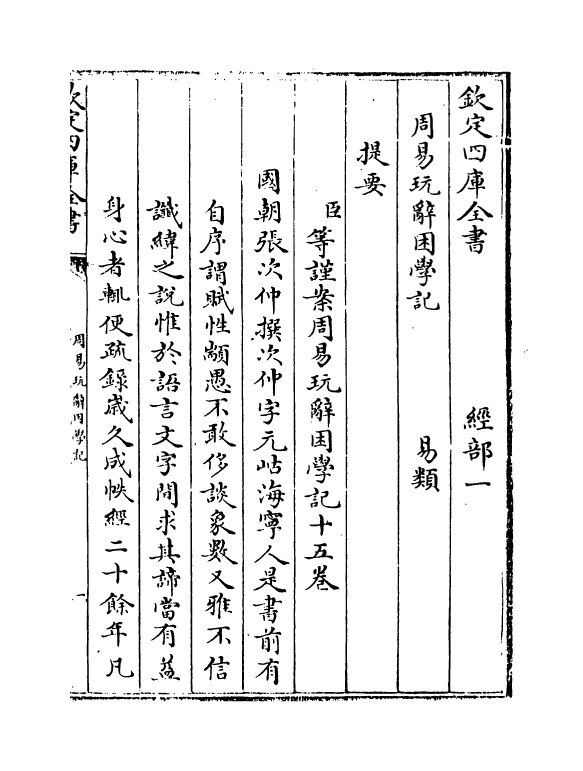 欽定四庫全書　經部一
周易玩辭困學記　易類
提要
臣等謹案周易玩辭困學記十五卷
國朝張次仲撰次仲字元岵海寧人是書前有
自序謂賦性顓愚不敢侈談象數又雅不信
讖緯之說惟於語言文字間求其諦當有益
身心者輒便疏錄歲久成帙經二十餘年凡
欽定四庫全書
周易玩辭困學記
一